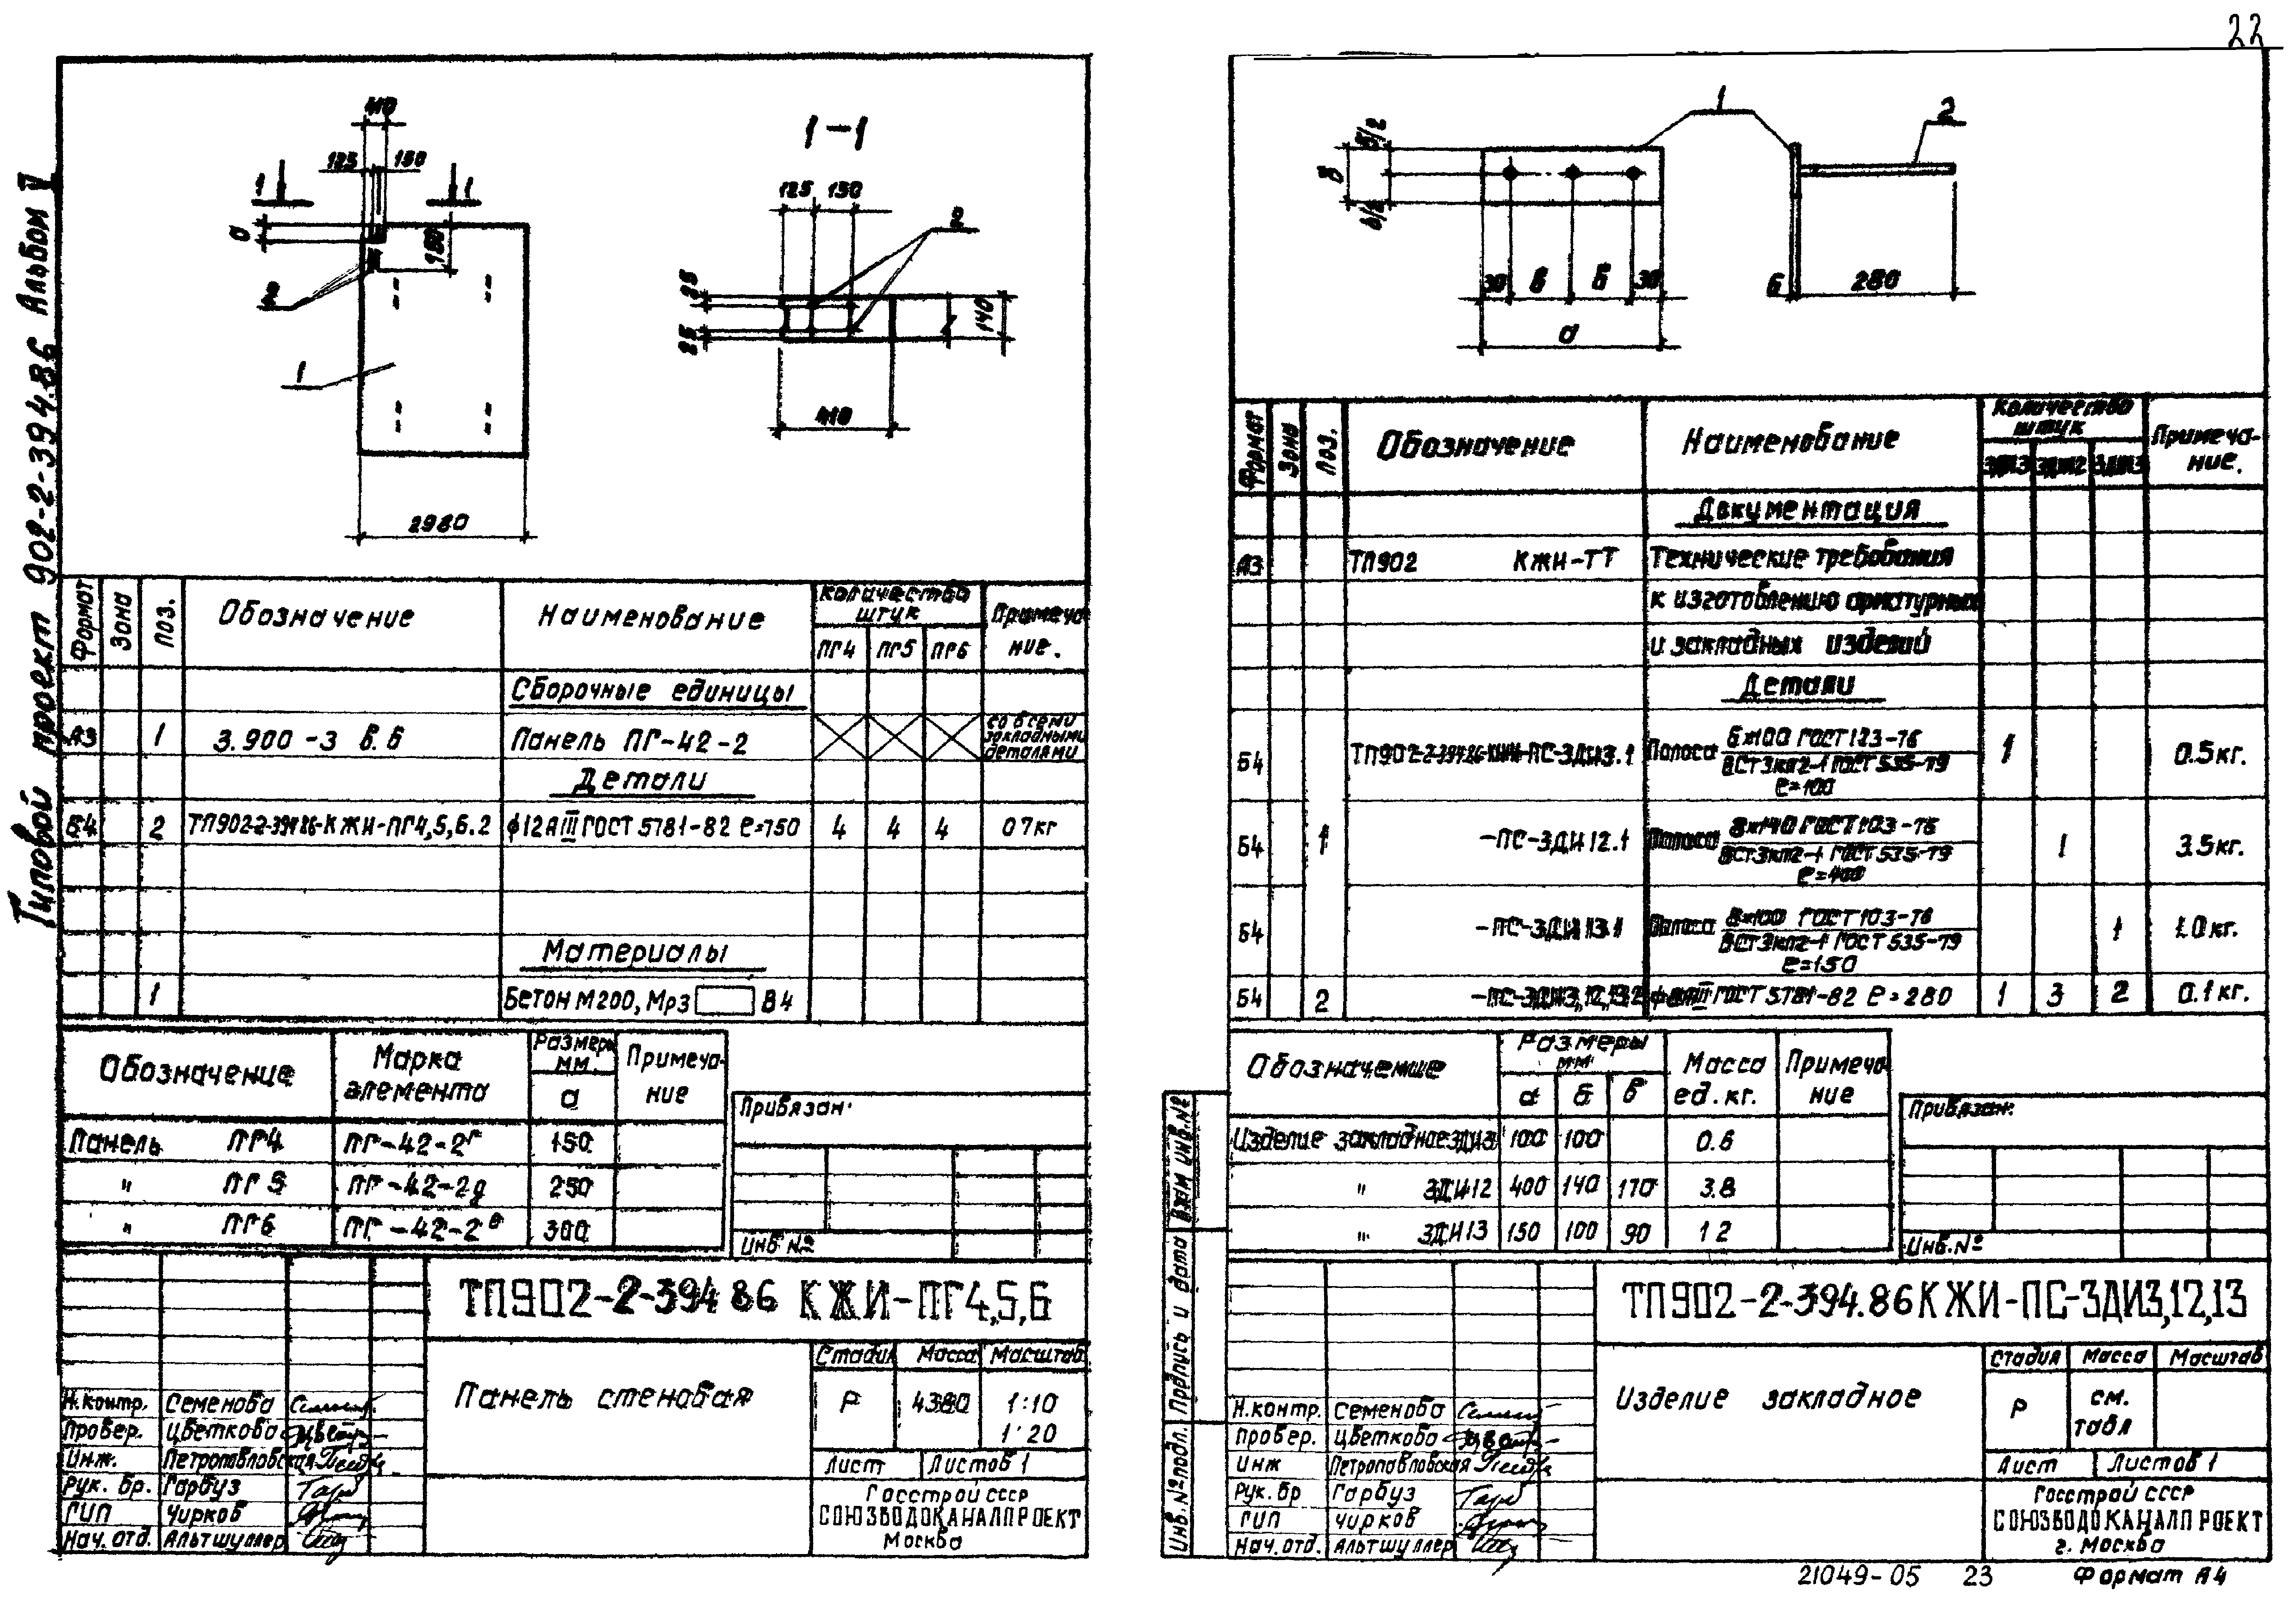 22
Типовой проект 902-2-394.86 Альбом V
410
125 150
1 1
а
2
1
2980
1-1
125 150
2
25
25
140
410
Формат Зона Поз. Обозначение Наименование Количество штук Примеча-ние.
ПГ4 ПГ5 ПГ6
Сборочные единицы
А3 1 3.900-3 в.6 Панель ПГ-42-2 со всеми закладными деталями
Детали
Б4 2 ТП902-2-394.86-КЖИ-ПГ4,5,6.2 ф12АIII ГОСТ 5781-82 е=750 4 4 4 0 7кг
Материалы
1 Бетон М200, Мрз В4
Обозначение Марка элемента Размеры мм. Примеча-ние
а
Панель ПГ4 ПГ-42-2г 150
" ПГ5 ПГ-42-2д 250
" ПГ6 ПГ-42-2е 300
Привязан:
Инв №
ТП902-2-394 86 КЖИ-ПГ4,5,6
Панель стеновая
Стадия Масса Масштаб
Р 4380 1:10
1:20
Лист Листов 1
Госстрой СССР
СОЮЗВОДОКАНАЛПРОЕКТ
Москва
Н.контр. Семенова
Провер. Цветкова
Инж. Петропавловская
Рук. бр. Гарбуз
ГИП Чирков
Нач. отд. Альтшуллер
1
2
б/2
б
б/2
30 в в 30
а
6 280
Формат Зона Поз. Обозначение Наименование Количество штук Примеча-ние.
Документация
А3 ТП902 КЖИ-ТТ Технические требования
к изготовлению арматурных
и закладных изделий
Детали
Б4 ТП902-2-394.86-КЖИ-ПС-ЗДИ3.1 Полоса 6×100 ГОСТ 123-76 1 0.5кг.
ВСт3кп2-1 ГОСТ 535-79
е=100
Б4 1 -ПС-ЗДИ12.1 Полоса 8×140 ГОСТ 103-76 1 3.5кг.
ВСт3кп2-1 ГОСТ 535-79
е=400
Б4 -ПС-ЗДИ13.1 Полоса 8×100 ГОСТ 103-76 1 1.0кг.
ВСт3кп2-1 ГОСТ 535-79
е=150
Б4 2 -ПС-ЗДИ3,12,13.2 ГОСТ 5781-82 е=280 1 3 2 0.1кг.
Обозначение Размеры мм Масса ед.кг. Примеча-ние
а б в
Изделие закладное ЗДИ3 100 100 0.6
" ЗДИ12 400 140 170 3.8
" ЗДИ13 150 100 90 1 2
Привязан:
Инв.№
Взам инв.№
Подпись и дата
Инв.№ подл.
ТП902-2-394.86 КЖИ-ПС-ЗДИ3,12,13
Изделие закладное
Стадия Масса Масштаб
Р см. табл
Лист Листов 1
Госстрой СССР
СОЮЗВОДОКАНАЛПРОЕКТ
г. Москва
Н.контр. Семенова
Провер. Цветкова
Инж Петропавловская
Рук. бр Гарбуз
ГИП Чирков
Нач. отд. Альтшуллер
21049-05 23 Формат А4